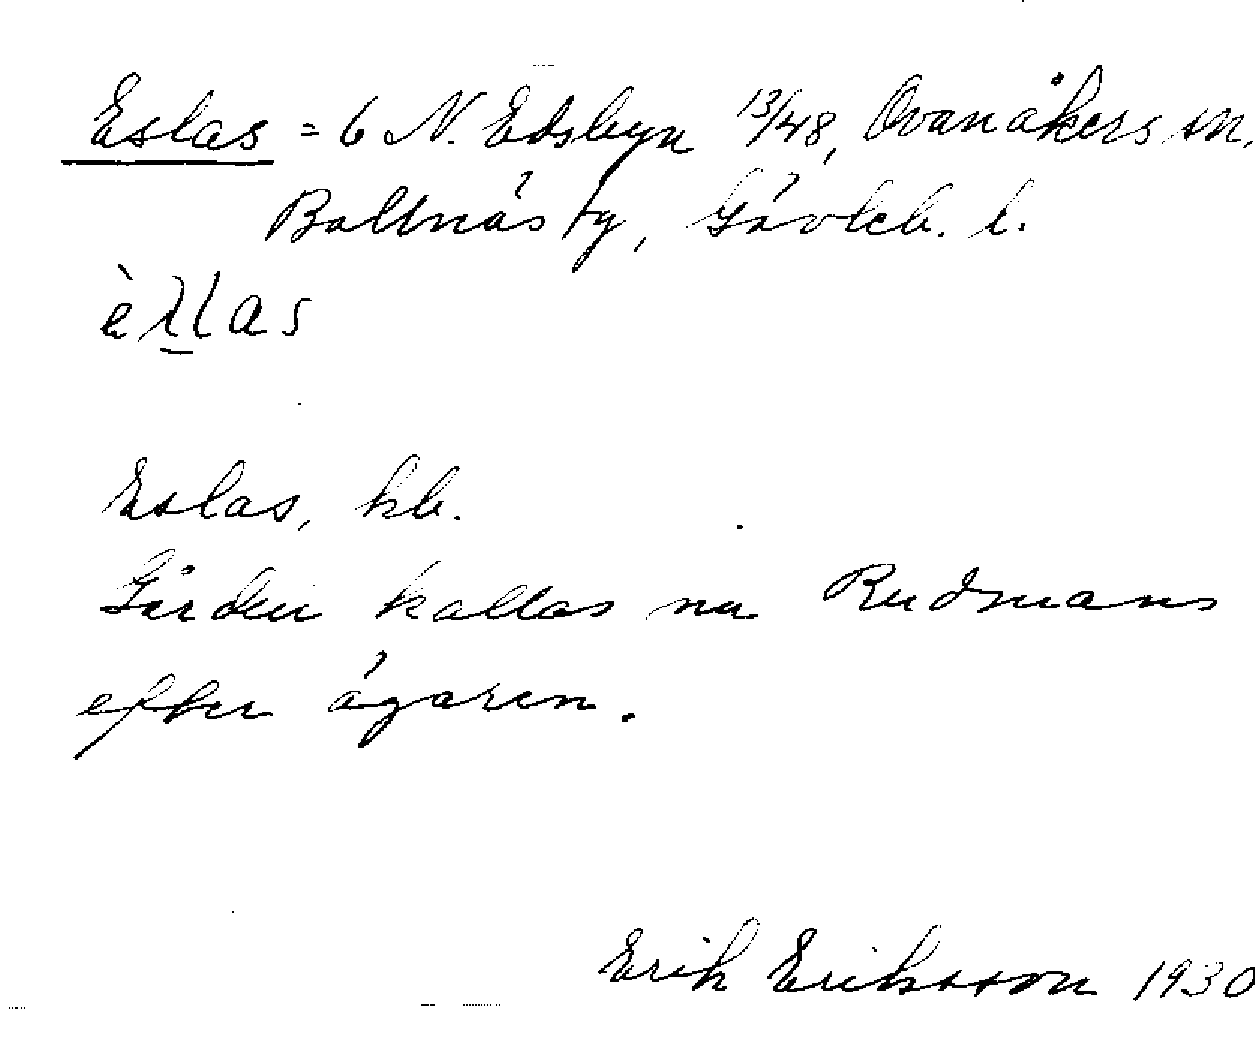 Eslas = 6 N. Edsbyn 13/48, Ovanåkers sn,
Bollnäs tg, Gävleb. l.
Eslas, kb.
Gården kallas nu Rudmans
efter ägaren.
Erik Eriksson 1930